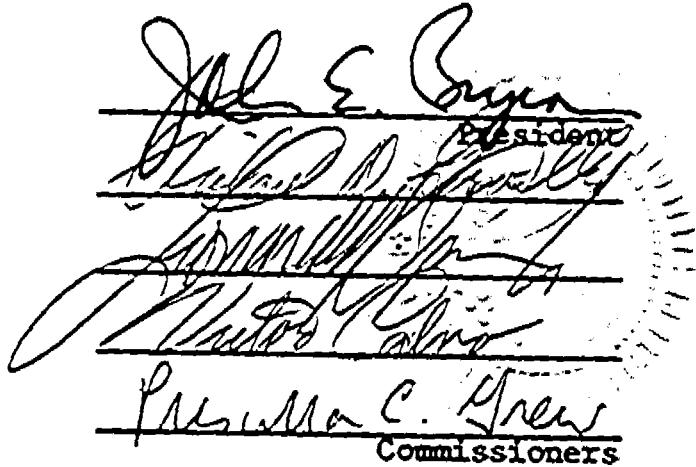 John E. Bryson
President
Leonard M. Grimes
Victor Calvo
Priscilla C. Grew
Commissioners